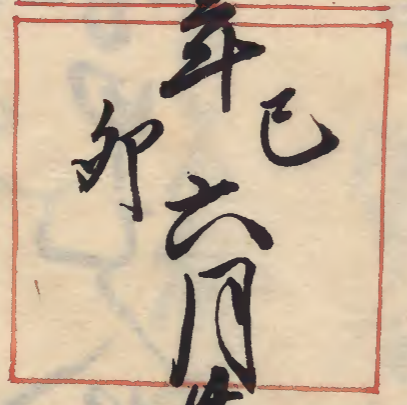 年
己卯
六月